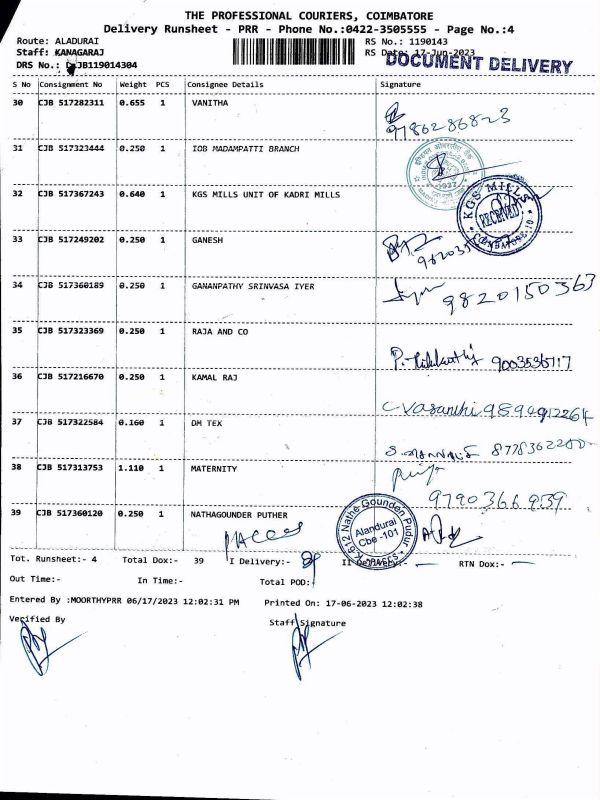 THE PROFESSIONAL COURIERS, COIMBATORE
Delivery Runsheet - PRR - Phone No.:0422-3505555 - Page No.:4
Route: ALADURAI RS No.: 1190143
Staff: KANAGARAJ RS Date: 17-Jun-2023
DOCUMENT DELIVERY
DRS No.: JB119014304
S No Consignment No Weight PCS Consignee Details Signature
30 CJB 517282311 0.655 1 VANITHA
9786286823
31 CJB 517323444 0.250 1 IOB MADAMPATTI BRANCH
1937
32 CJB 517367243 0.640 1 KGS MILLS UNIT OF KADRI MILLS
KGS MILLS
RECEIVED
COIMBATORE-10
33 CJB 517249202 0.250 1 GANESH
34 CJB 517360189 0.250 1 GANANPATHY SRINVASA IYER
9820150363
35 CJB 517323369 0.250 1 RAJA AND CO
9003535717
36 CJB 517216670 0.250 1 KAMAL RAJ
C. Vasanthi 9894912264
37 CJB 517322584 0.160 1 DM TEX
38 CJB 517313753 1.110 1 MATERNITY
9790366939
39 CJB 517360120 0.250 1 NATHAGOUNDER PUTHER
K-612 Nathe Gounden Pudur
Alandurai
Cbe -101
PACCS
Tot. Runsheet:- 4 Total Dox:- 39 I Delivery:- II Delivery:- RTN Dox:-
Out Time:- In Time:- Total POD:
Entered By :MOORTHYPRR 06/17/2023 12:02:31 PM Printed On: 17-06-2023 12:02:38
Verified By Staff Signature